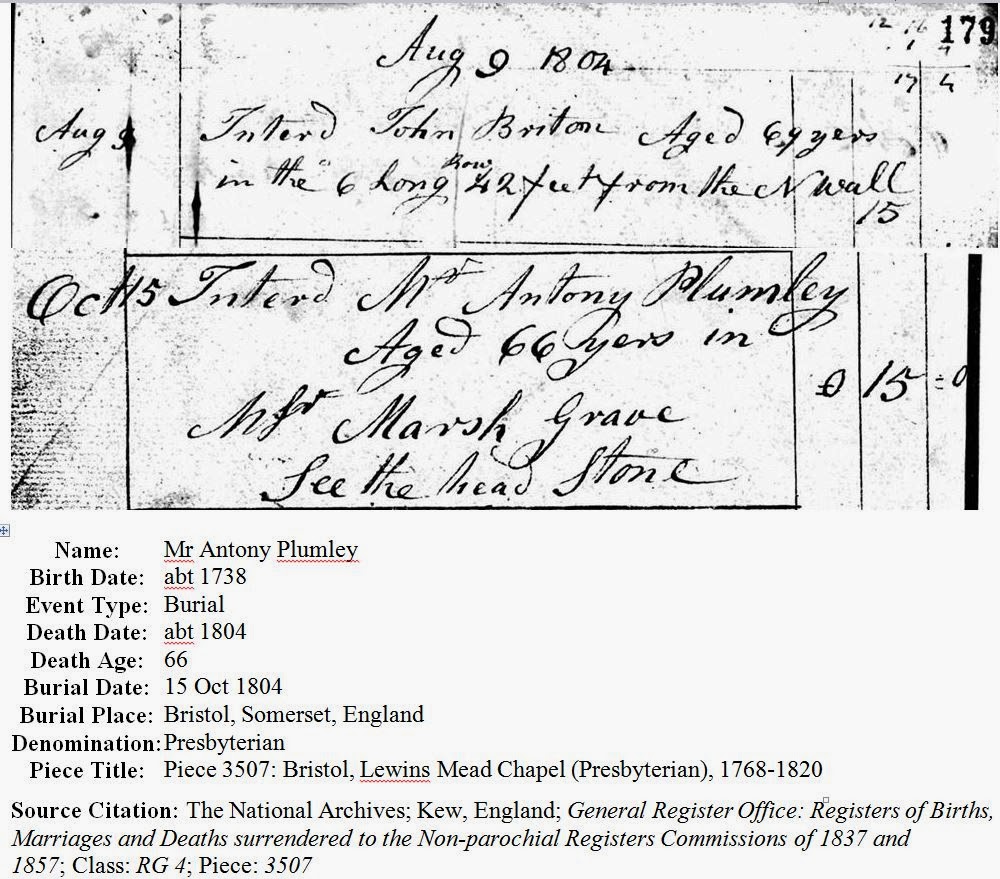 179
Aug 9 1804
17 4
Aug 9 Interd John Briton Aged 69 yers
in the 6 Long Row 42 feet from the N wall
15
Oct 15 Interd Mr Antony Plumley
Aged 66 yers in
0 15 = 0
Mr Marsh Grave
See the head Stone
Name: Mr Antony Plumley
Birth Date: abt 1738
Event Type: Burial
Death Date: abt 1804
Death Age: 66
Burial Date: 15 Oct 1804
Burial Place: Bristol, Somerset, England
Denomination: Presbyterian
Piece Title: Piece 3507: Bristol, Lewins Mead Chapel (Presbyterian), 1768-1820
Source Citation: The National Archives; Kew, England; General Register Office: Registers of Births,
Marriages and Deaths surrendered to the Non-parochial Registers Commissions of 1837 and
1857; Class: RG 4; Piece: 3507